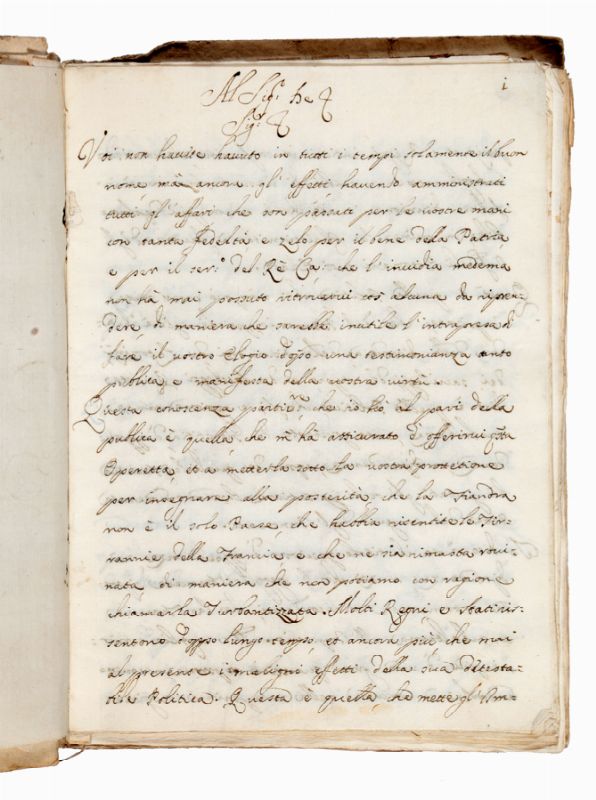 1
Al Sig.r
Sig.r
Voi non havete havuto in tutti i tempi solamente il buon
nome mà ancora gl'effetti, havendo amministrati
tutti gl'affari che son passati per le vostre mani
con tanta fedeltà e zelo per il bene della Patria
e per il ser.o del Rè Ca: che l'invidia medema
non hà mai possuto ritrovarvi cos' alcuna da ripren:
dere, di maniera che sarebbe inutile l'intrapresa di
fare il vostro Elogio doppo una testimonianza tanto
publica, e manifesta della vostra virtù
Questa conoscenza che io hò al pari della
publica è quella, che m'hà d'offerirvi q.ta
Operetta, et à metterla sotto la vostra protettione
per insegnare alla posterità che la Fiandra
non è il solo Paese, che habbia risentite le Tir:
rannie della Francia e che ne sia rimasta rovi:
nata di maniera che non potiamo con ragione
chiamarla Molti Regni, e Stati ri:
sentono doppo lungo tempo, et ancora più che mai
al presente i maligni effetti della sua detesta:
bile Politica. Questa è quella che mette gl'Im: